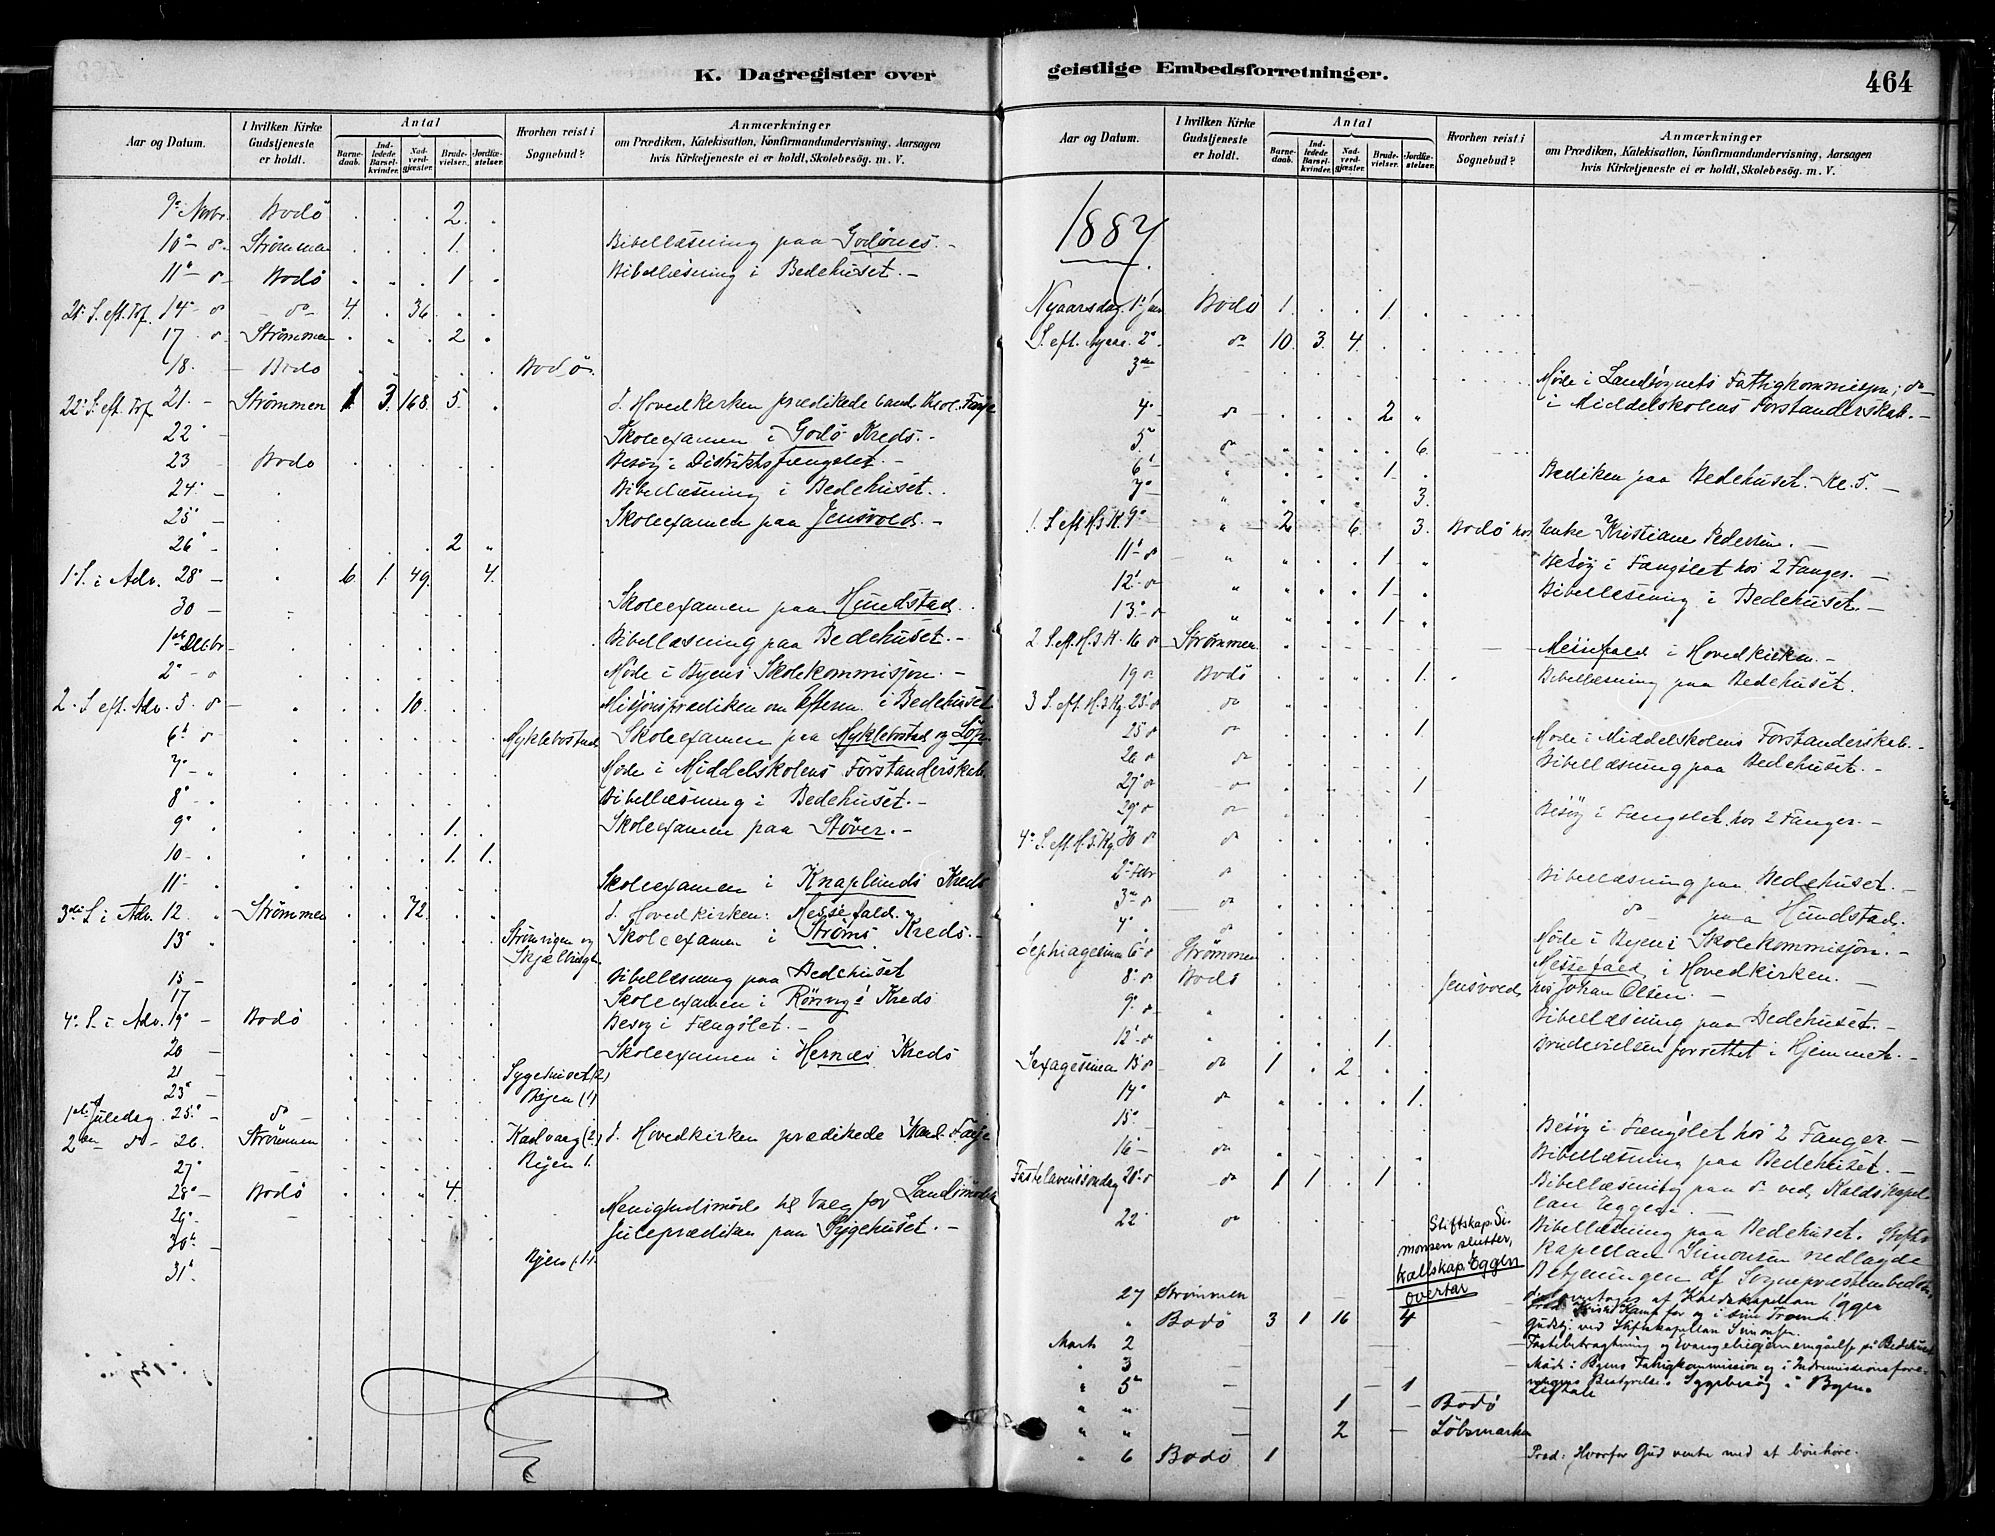 K. Dagregister over
Aar og Datum.
I hvilken Kirke Gudstjeneste er holdt.
Antal
Barne-daab.
Ind-ledede Barsel-kvinder.
Nad-verd-gjæster.
Brude-vielser.
Jordfæ-stelser.
Hvorhen reist i Sognebud?
Anmærkninger
om Prædiken, Katekisation, Konfirmandundervisning, Aarsagen
hvis Kirketjeneste ei er holdt, Skolebesög. m. V.
9 Novbr. Bodö . . . 2 .
10 - d. Strømmen . . . 1. Bibellæsning paa Godönes. -
11 - d Bodö . . . 1 . Bibellæsning i Bedehuset. -
21. S. eft. Tref. 14 - d - do - 4. . 36 . .
17. d Strømmen . . . 2 .
18. - Bodö . . . . . Bodö.
22. S. eft. Tref 21. - Strømmen 1 3. 168. 5. . I Hovedkirken prædikede Cand. theol. Farje
22 - Skoleexamen i Godö Kreds. -
23 - Bodö Besög i Distriktsfængslet -
24. - Bibellæsning i Bedehuset.
25 - Skoleexamen paa Jensvold. -
26 - 2 "
1. S. i Adv. 28 - 6. 1. 49. . 4.
30 - Skoleexamen paa Hundstad.
1ste Decbr - Bibellæsning paa Bedehuset. -
2 - d Möde i Byens Skolekommisjon. -
2. S. eft. Adv. 5. d - 10. Misjonsprædiken om Efterm. i Bedehuset
6 d Myklebostad Skoleexamen paa Myklebostad og Löp.
7 - " Möde i Middelskolens Forstanderskab.
8 - . Bibellæsning i Bedehuset. -
9 . 1. Skoleexamen paa Støver. -
10 - . 1. 1.
11 - Skoleexamen i Knaplunds Kreds
3die S. i Adv. 12. Strømmen . . 72. . . I Hovedkirken: Messefald.
13 Skjælstad Skoleexamen i Strøms Kreds. -
15 - Bibellæsning paa Bedehuset
17 Skoleexamen i Rönvigs Kreds
4. S. i Adv. 19 - Bodö Besög i Fængslet. -
20 - Skoleexamen i Hernæs Kreds
21 - Sygehuset (2)
23 - Byen (1)
1ste Juledag. 25. do -
2den d - 26. Strømmen I Hovedkirken prædikede Kand. Farje
27 - Byen 1.
28 - Bodö . . . 4. .
29 - Menighedsmöde til Valg for Landsmödet
30 - Juleprædiken paa Sygehuset. -
31 Byen (1)
geistlige Embedsforretninger.
464
Aar og Datum.
I hvilken Kirke Gudstjeneste er holdt.
Antal
Barne-daab.
Ind-ledede Barsel-kvinder.
Nad-verd-gjæster.
Brude-vielser.
Jordfæ-stelser.
Hvorhen reist i Sognebud?
Anmærkninger
om Prædiken, Katekisation, Konfirmandundervisning, Aarsagen
hvis Kirketjeneste ei er holdt, Skolebesög. m. V.
1887.
Nyaarsdag. 1 Jan Bodö 1. . . 1. .
S. eft. Nyaar. 2 do 10. 3. 4. . .
3die Möde i Landsognets Fattigkommisjon; do
4 do 2. " i Middelskolens Forstanderskab. -
5 do 6.
6 " 1. Prædiken paa Bedehuset. Kl. 5. -
7 - " 3.
1. S. eft. H. 3. K. 9 " 2. . 6. . 3. Bodö hos Enke Kristiane Pedersen. -
11 - d " 1. Besög i Fængslet hos 2 Fanger. -
12 - d " 1. Bibellæsning i Bedehuset. -
13 - d " 1.
2 S. eft. H. 3. K. 16 d Strømmen Messefald i Hovedkirken. -
19 d Bodö 1. Bibellæsning paa Bedehuset.
3 S. eft. H. 3. Kg. 23 d do
25 d do 1 Möde i Middelskolens Forstanderskab. -
26 d do Bibellæsning paa Bedehuset. -
27 d do 1
29 d do Besög i Fængslet hos 2 Fanger. -
4 S. eft. H. 3. Kg. 30 d do
2 Febr do Bibellæsning paa Bedehuset. -
3 d do do - paa Hundstad.
4. do Möde i Byens Skolekommisjon. -
Septuagesima 6 d Strømmen Messefald i Hovedkirken. -
8 d Bodö Jensvold, hos Johan Olsen. -
9 d " Bibellæsning paa Bedehuset. -
12 - d " 1. Brudevielsen forrettet i Hjemmet. -
Sexagesima 13 d - do 1 . 2. . .
14 do 1.
15 - Besög i Fængslet hos 2 Fanger -
16 - do Bibellæsning paa Bedehuset. -
Fastelavenssöndag 20 d do 1 1 . 1. Bibellæsning paa do ved Kaldskapel-
lan Eggen. -
22 do Bibellæsning paa Bedehuset. Stifts-
kapellan Simonsen nedlagde
Betjeningen af Sognepræstembedet,
Stiftskap. Si-
monsen slutter,
Kallskap. Eggen
overtar
der overtages af Kaldskapellan Eggen
27 Strømmen
" Bodö 3 1 16 4 Gudstj. ved Stiftskapellan Simonsen.
Marts 2 -
" 3 - Möde i Byens Fattigkommission og i Indremissionsfore-
" 5 - - 1 ningens Bestyrelse. Sygebesög i Byen.
" " - 1 - Bodö
" " - 2 - Löbsmarken
" 6 Bodö 1 Præd: Hvorfor Gud vente med at bönhöre.